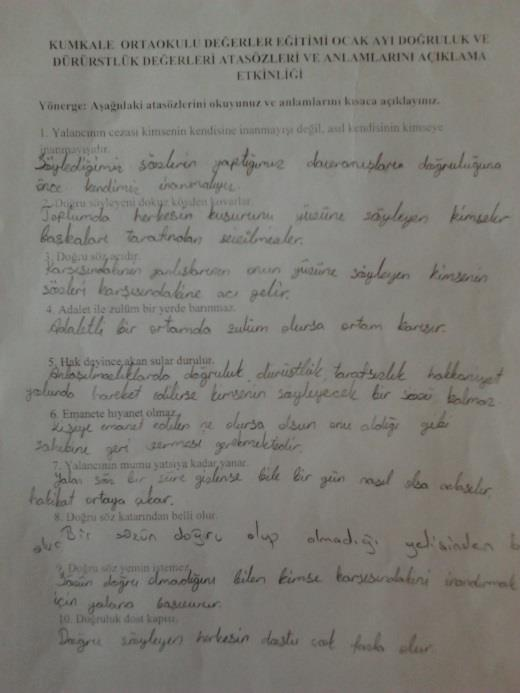 KUMKALE ORTAOKULU DEĞERLER EĞİTİMİ OCAK AYI DOĞRULUK VE
DÜRÜRSTLÜK DEĞERLERİ ATASÖZLERİ VE ANLAMLARINI AÇIKLAMA
ETKİNLİĞİ
Yönerge: Aşağıdaki atasözlerini okuyunuz ve anlamlarını kısaca açıklayınız.
1. Yalancının cezası kimsenin kendisine inanmayışı değil, asıl kendisinin kimseye
inanmayışıdır.
Söylediğimiz sözlerin yaptığımız davranışların doğruluğuna
önce kendimiz inanmalıyız.
2. Doğru söyleyeni dokuz köyden kovarlar.
Toplumda herkesin kusurunu yüzüne söyleyen kimseler
başkaları tarafından sevilmezler.
3. Doğru söz acıdır.
Karşısındakinin yanlışlarının onun yüzüne söyleyen kimsenin
sözleri karşısındakine acı gelir.
4. Adalet ile zulüm bir yerde barınmaz.
Adaletli bir ortamda zulüm olursa ortam karışır.
5. Hak deyince akan sular durulur.
Anlaşılmazlıklarda doğruluk, dürüstlük, tarafsızlık hakkaniyet
yolunda hareket edilirse kimsenin söyleyecek bir sözü kalmaz.
6. Emanete hıyanet olmaz.
Kişiye emanet edilen ne olursa olsun onu aldığı gibi
sahibine geri vermesi gerekmektedir.
7. Yalancının mumu yatsıya kadar yanar.
Yalan söz bir süre gizlense bile bir gün nasıl olsa anlaşılır
hakikat ortaya çıkar.
8. Doğru söz katarından belli olur.
Bir sözün doğru olup olmadığı gelişinden b
olur
9. Doğru söz yemin istemez.
Sözün doğru olmadığını bilen kimse karşısındakini inandırmak
için yalana başvurur.
10. Doğruluk dost kapısı.
Doğru söyleyen herkesin dostu çok fazla olur.